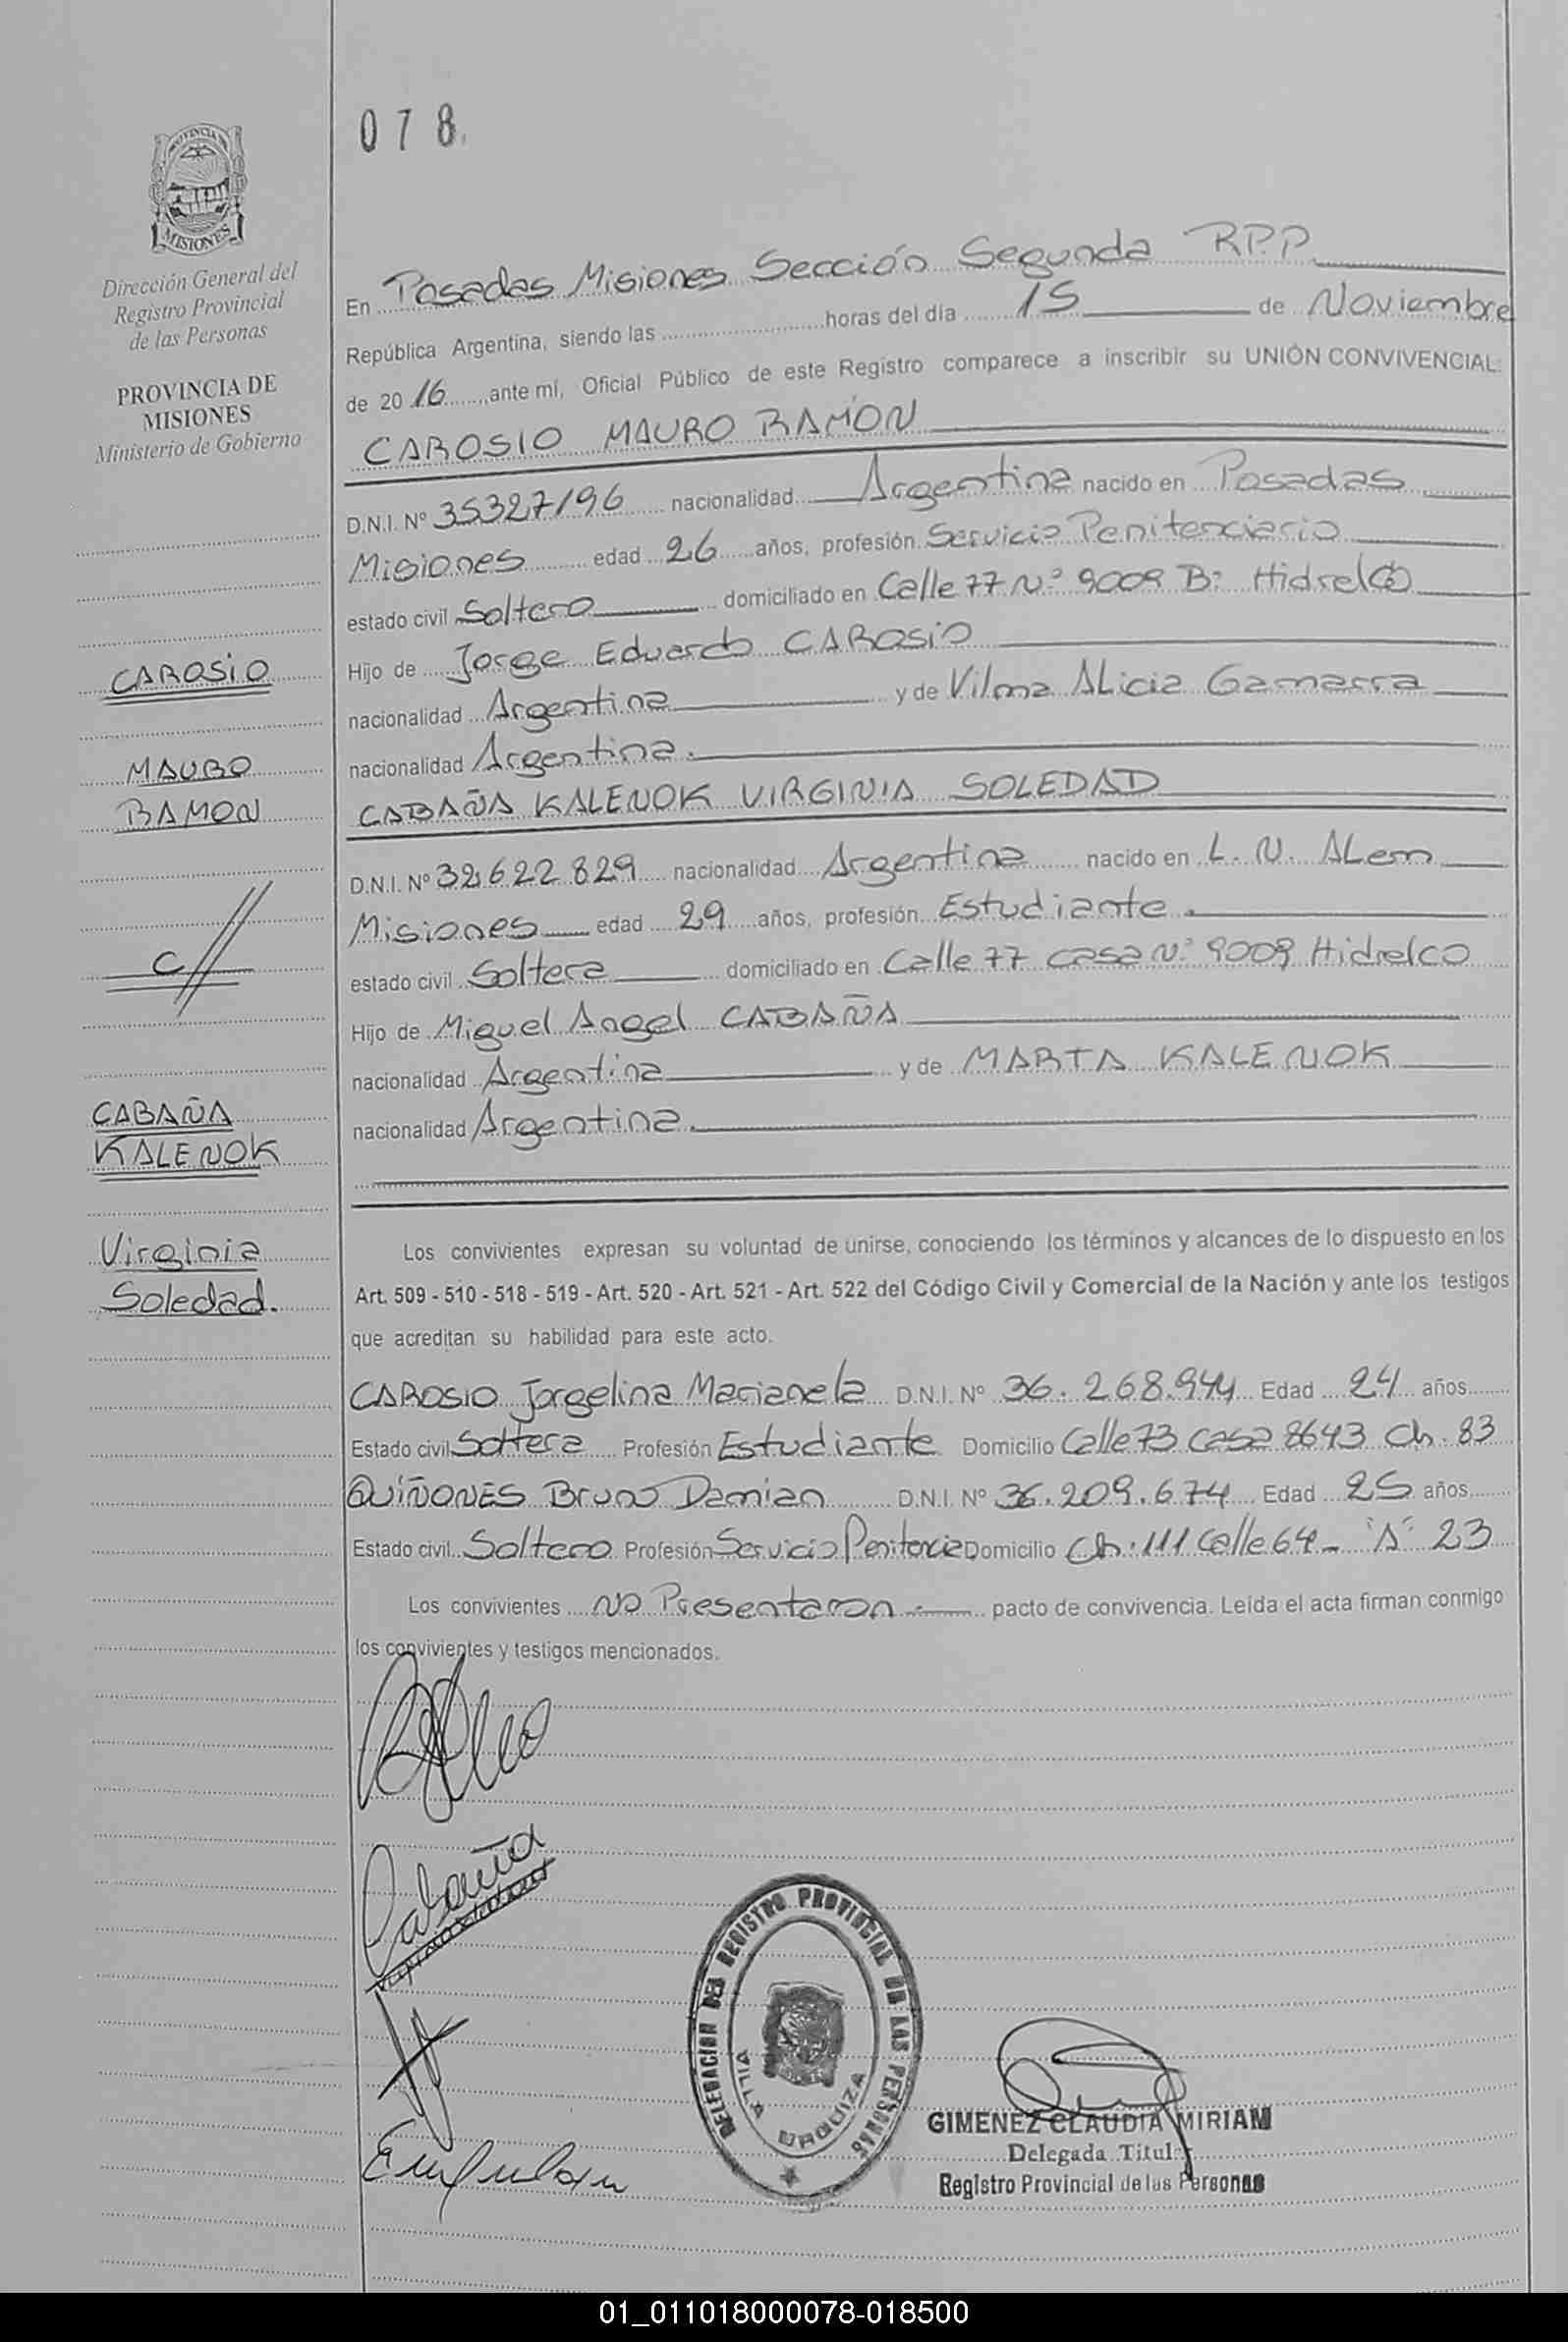 078
PROVINCIA DE
MISIONES
Dirección General del
Registro Provincial
de las Personas
PROVINCIA DE
MISIONES
Ministerio de Gobierno
En Posadas Misiones Sección Segunda R.P.P.
República Argentina, siendo las horas del día 15 de Noviembre
de 2016 ante mí, Oficial Público de este Registro comparece a inscribir su UNIÓN CONVIVENCIAL:
CAROSIO MAURO RAMÓN
D.N.I. Nº 35327196 nacionalidad Argentina nacido en Posadas
Misiones edad 26 años, profesión Servicio Penitenciario
estado civil Soltero domiciliado en Calle 77 Nº 9009 Bº Hidrelco
Hijo de Jorge Eduardo CAROSIO
nacionalidad Argentina y de Vilma Alicia Gamarra
nacionalidad Argentina.
CABAÑA KALENOK VIRGINIA SOLEDAD
D.N.I. Nº 32622829 nacionalidad Argentina nacido en L. N. Alem
Misiones edad 29 años, profesión Estudiante.
estado civil Soltera domiciliado en Calle 77 casa Nº 9009 Hidrelco
Hijo de Miguel Angel CABAÑA
nacionalidad Argentina y de MARTA KALENOK
nacionalidad Argentina.
CAROSIO
MAURO
RAMON
C//
CABAÑA
KALENOK
Virginia
Soledad.
Los convivientes expresan su voluntad de unirse, conociendo los términos y alcances de lo dispuesto en los
Art. 509 - 510 - 518 - 519 - Art. 520 - Art. 521 - Art. 522 del Código Civil y Comercial de la Nación y ante los testigos
que acreditan su habilidad para este acto.
CAROSIO Jorgelina Marianela D.N.I. Nº 36.268.944 Edad 24 años
Estado civil Soltera Profesión Estudiante Domicilio Calle 73 casa 8643 Ch. 83
QUIÑONES Bruno Damian D.N.I. Nº 36.209.674 Edad 25 años
Estado civil Soltero Profesión Servicio Penitencia Domicilio Ch. 111 Calle 64 - "A" 23
Los convivientes no Presentaron pacto de convivencia. Leída el acta firman conmigo
los convivientes y testigos mencionados.
Cabaña
DELEGACION DEL REGISTRO PROVINCIAL DE LAS PERSONAS
VILLA URQUIZA
GIMENEZ CLAUDIA MIRIAM
Delegada Titular
Registro Provincial de las Personas
01_011018000078-018500